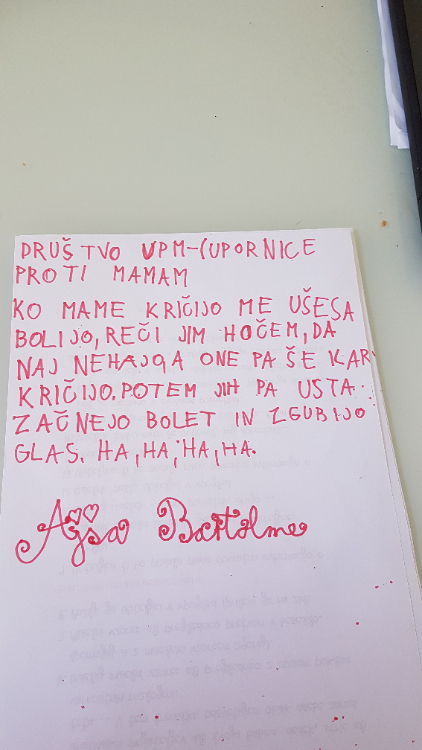 DRUŠTVO UPM-(UPORNICE
PROTI MAMAM
KO MAME KRIČIJO ME UŠESA
BOLIJO, REČI JIM HOČEM, DA
NAJ NEHAJO, A ONE PA ŠE KAR
KRIČIJO. POTEM JIH PA USTA
ZAČNEJO BOLET IN ZGUBIJO
GLAS. HA, HA, HA, HA.
Ajsa Bartolme